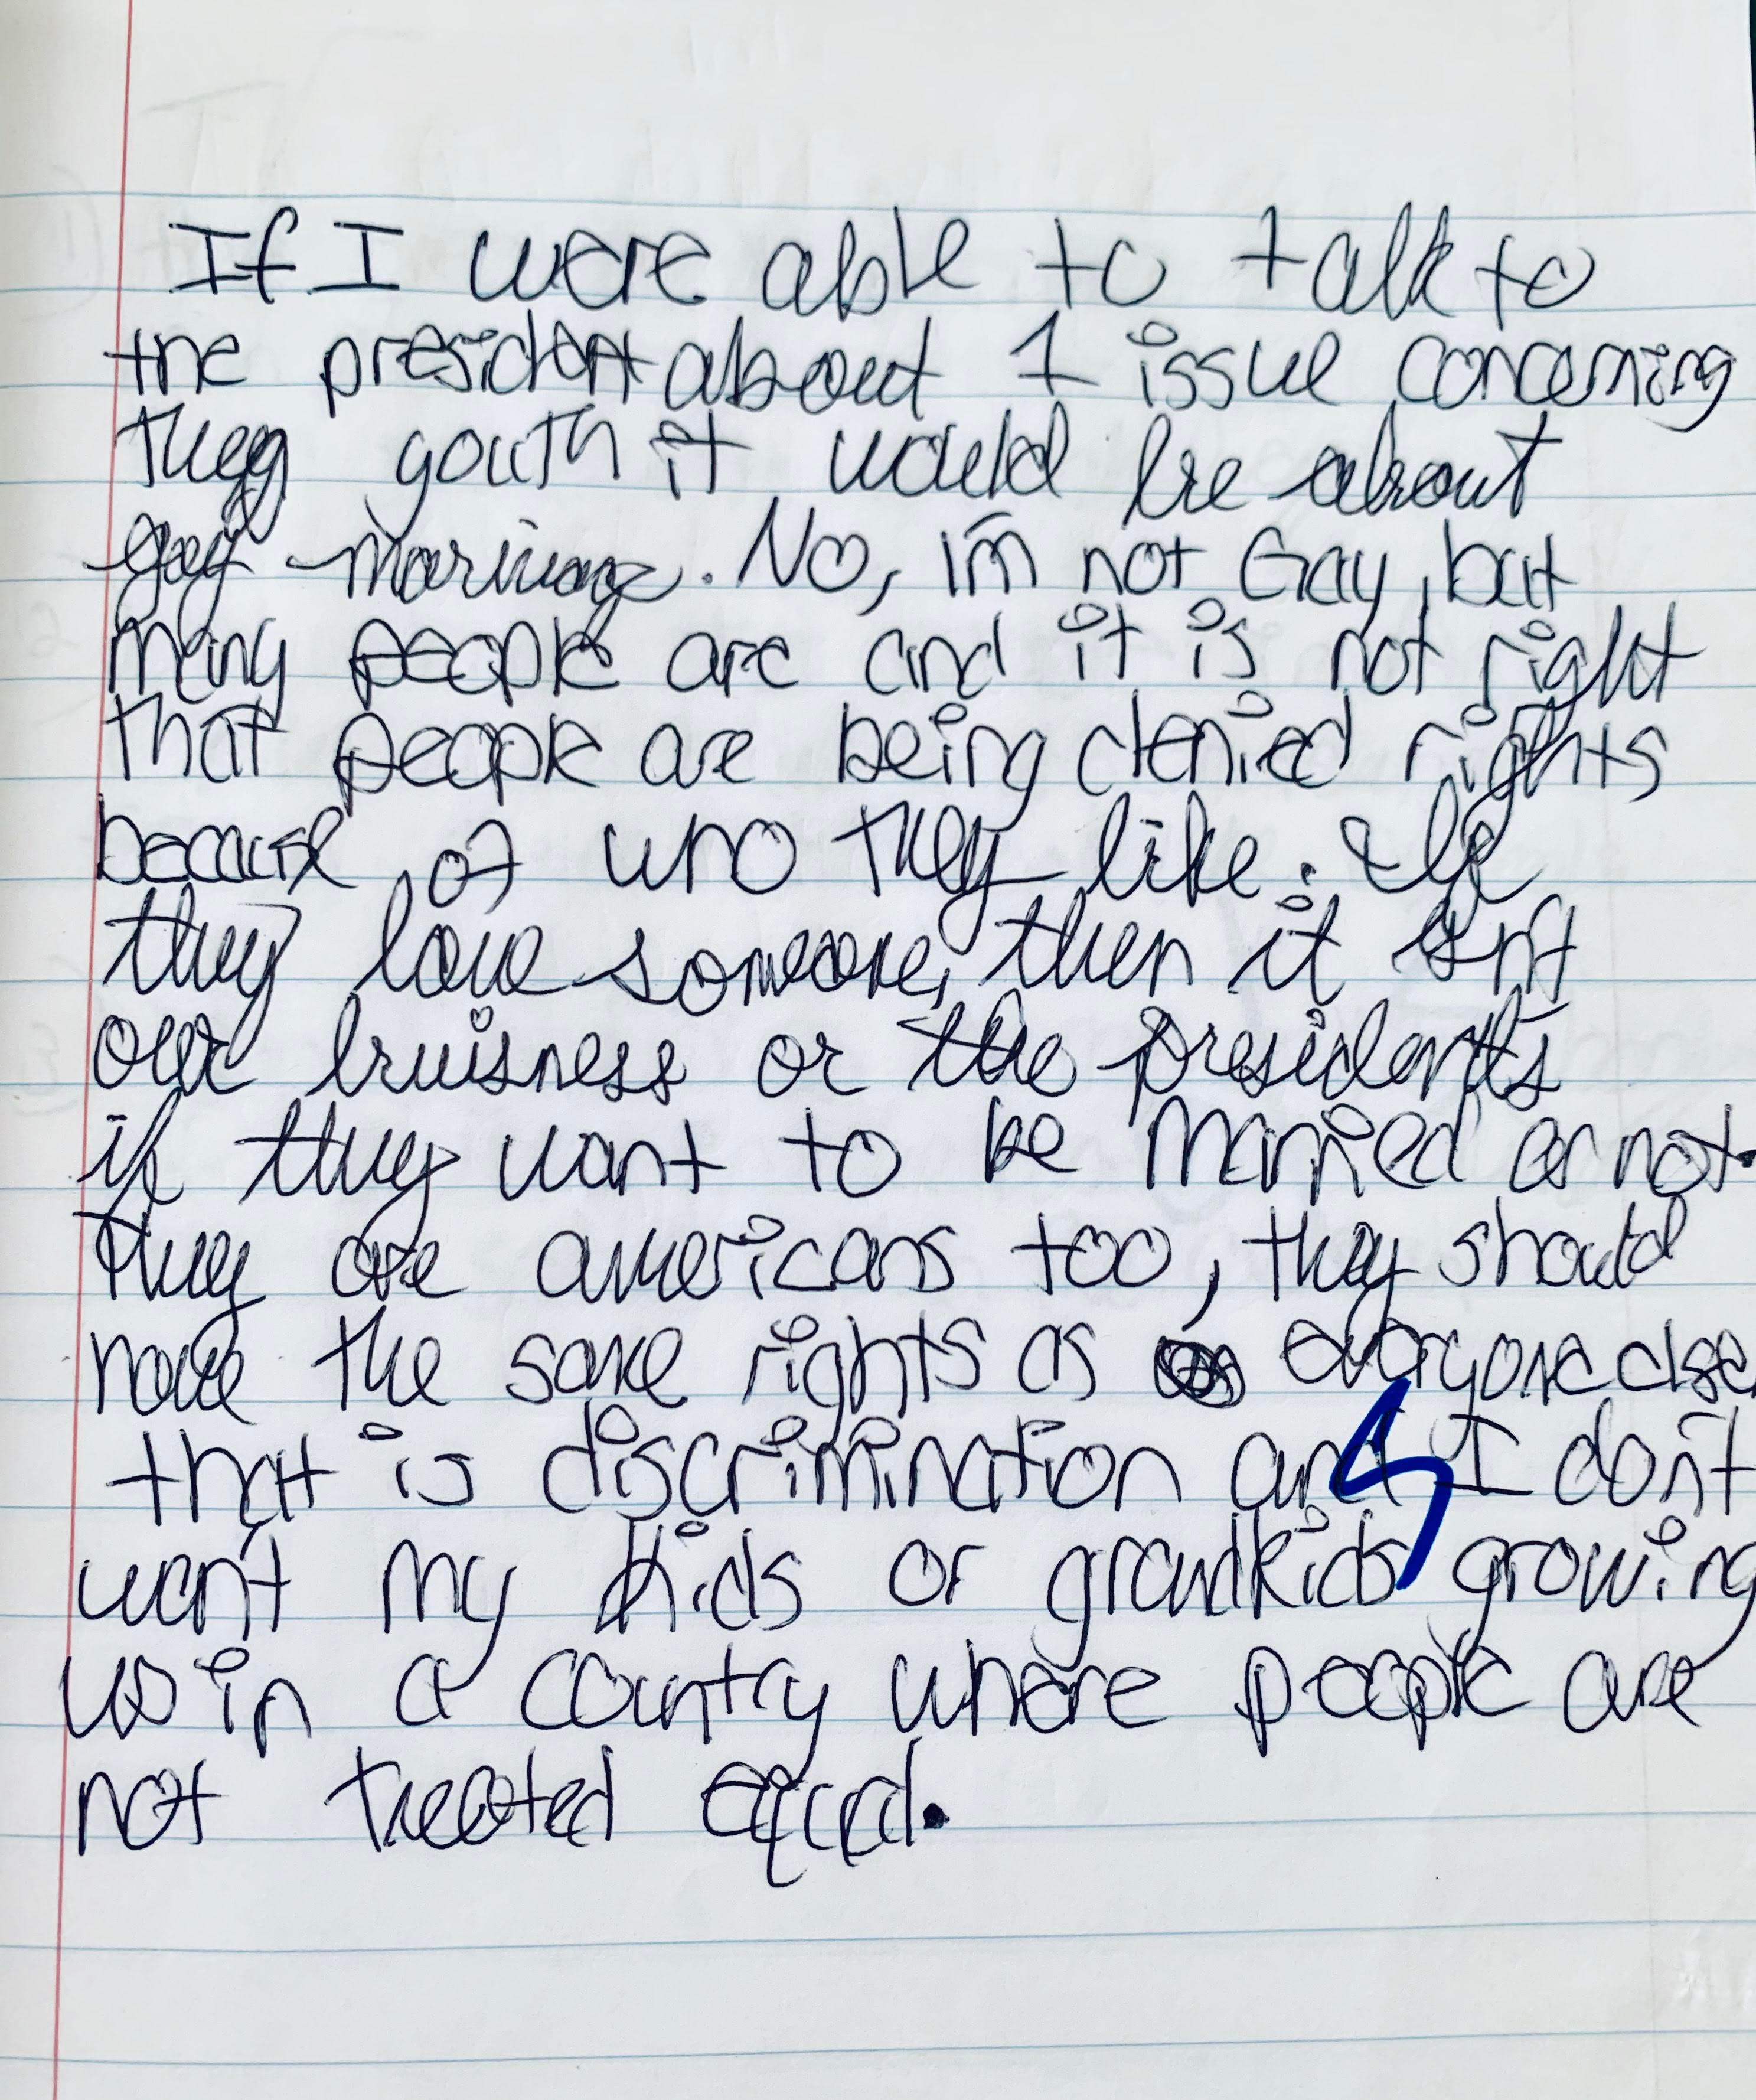 If I were able to talk to
the president about 1 issue concerning
they youth it would be about
gay marriage. No, im not Gay, but
many people are and it is not right
that people are being denied rights
because of who they like. If
they love someone, then it isn't
our bruisness or the president's
if they want to be married or not.
they are americans too, they should
have the same rights as everyone else.
that is discrimination and I don't
want my kids or grandkids growing
up in a country where people are
not treated equal.